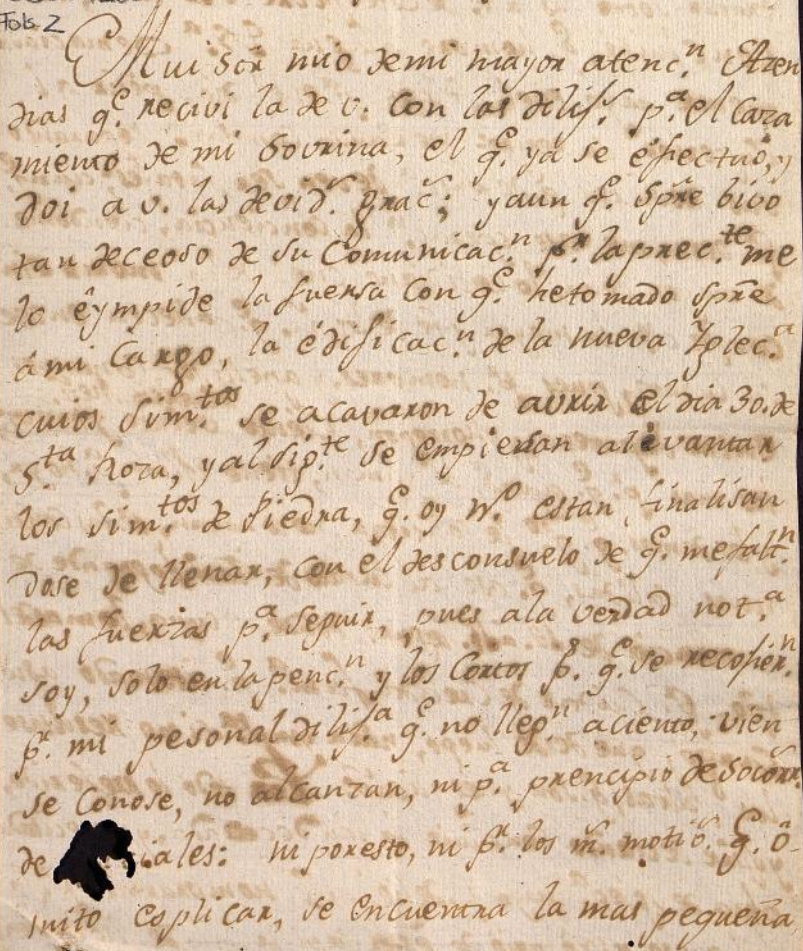 Fols. 2
Mui Sor̃ mio de mi mayor atenc.ⁿ Azen
dias q.ᵉ recivi la de v. con las dilig.ˢ p.ᵃ el Caza
miento de mi Sovrina, el q.ᵉ ya se éfectuó, y
doi a v. las devid.ˢ grac.ˢ; y aun q.ᵉ spr̃e bivo
tan deceoso de su Comunicac.ⁿ p.ʳ la prec.ᵗᵉ me
lo êympide la fuersa con q.ᵉ he tomado spr̃e
â mi Cargo, la édificac.ⁿ de la nueva Yglec.ᵃ
cuios sim.ᵗᵒˢ se acavaron de avrir el dia 30. de
5.ᵗᵃ hora, y al sig.ᵗᵉ se empiesan a levantar
los sim.ᵗᵒˢ de Piedra, q.ᵉ oy estan finalisan
dose de llenar, con el desconsuelo de q.ᵉ me falt.ⁿ
las fuerzas p.ᵃ seguir, pues a la verdad not.ᵃ
soy, solo en la penc.ⁿ y los Cortos p.ˢ q.ᵉ se recogier.ⁿ
p.ʳ mi pesonal dilig.ᵃ q.ᵉ no lleg.ⁿ a ciento, vien
se Conose, no alcanzan, ni p.ᵃ prencipio de socorr.
de iales: ni por esto, ni p.ʳ los m.ˢ motiō.ˢ q.ᵉ ô-
mito esplicar, se encuentra la mas pequeña